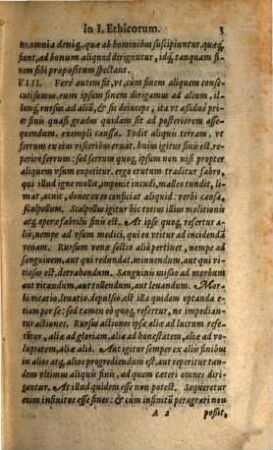 In I. Ethicorum. 3
tes, omnia deniq, quæ ab hominibus suscipiuntur, quæq;
sunt, ad bonum aliquod diriguntur, idq, tanquam fi-
nem sibi propositum spectant.
VIII. Ferè autem fit, vt, cum finem aliquem conse-
cuti sumus, eum ipsum finem dirigamus ad alium, il-
lumq́; rursus ad aliū, & sic deinceps, ita vt assiduè pri-
or finis quasi gradus quidam sit ad posteriorem asse-
quendum. exempli caussa. Fodit aliquis terram, vt
ferrum ex eius visceribus eruat. huius igitur finis est,
reperire ferrum: sed ferrum quoq, ipsum non nisi propter
aliquem vsum expetitur. ergo erutum traditur fabro,
qui illud igne mollit, imponit incudi, malleo tundit, li-
mat, acuit, donec tax eo conficiat aliquid: verbi caussa,
scalpellum. Scalpellū igitur hic totius illius molitionis
atq, operæ fabrilis finis est. At ipse quoq, refertur a-
liò, nempe ad vsum medici, qui eo vtitur ad incidendā
venam. Rursum venæ sectio aliò pertinet, nempe ad
sanguinem, aut qui redundat, minuendum, aut qui vi-
tiosus est, detrahendum. Sanguinis missio ad morbum
aut vitandum, aut tollendum, aut leuandum. Mor-
bi vitatio, leuatio, depulsio, est illa quidem optanda e-
tiam per se: sed tamen eò quoq, refertur, ne impedian-
tur actiones. Rursus actiones ipsæ aliæ ad lucrum refe-
rūtur, aliæ ad gloriam, aliæ ad honestatem, aliæ ad vo-
luptatem, aliæ aliò. Aut igitur semper ex aliis finibus
in alios atq, alios progrediendum est, aut reperitur tan-
dem vltimus aliquis finis, ad quem cæteri omnes diri-
gantur. At illud quidem esse non potest. Sequeretur
enim infinitos esse fines: & cùm infinitū peragrari non
A 2 possit,